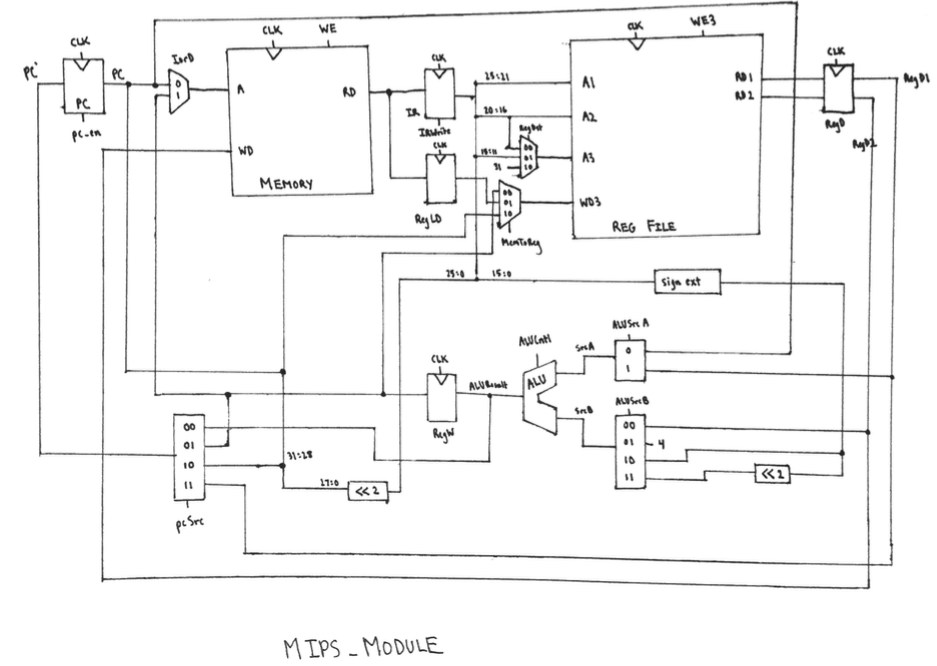 CLK
PC'
PC
PC
pc_en
IorD
0
1
CLK
WE
A
RD
WD
MEMORY
CLK
IR
IRWrite
CLK
RegLD
25:21
20:16
15:11
31
RegDst
00
01
10
00
01
10
MemToReg
CLK
WE3
A1
A2
A3
WD3
RD1
RD2
REG FILE
CLK
RegD
RegD1
RegD2
25:0
15:0
sign ext
CLK
RegW
ALUResult
ALUCntl
ALU
SrcA
SrcB
ALUSrcA
0
1
ALUSrcB
00
01
10
11
4
<<2
00
01
10
11
pcSrc
31:28
27:0
<<2
MIPS_MODULE